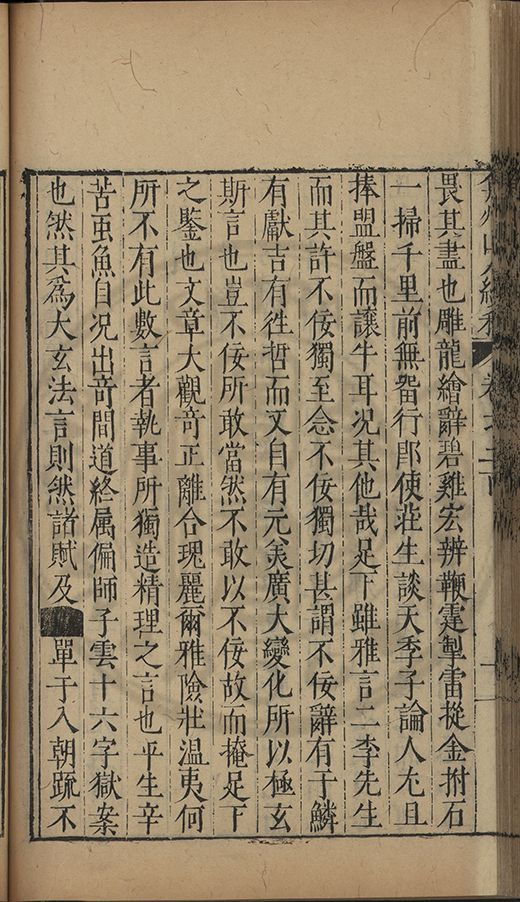 弇州山人續稿 卷
畏其盡也雕龍繪辭碧雞宏辨鞭霆掣雷摐金拊石
一掃千里前無畱行即使莊生談天季子論人尢且
捧盟盤而讓牛耳况其他哉足下雖雅言二李先生
而其許不佞獨至念不佞獨切甚謂不佞辭有于鱗
有獻吉有徃哲而又自有元美廣大變化所以極玄
斯言也豈不佞所敢當然不敢以不佞故而掩足下
之鑒也文章大觀竒正離合瑰麗爾雅險壯溫夷何
所不有此數言者執事所獨造精理之言也平生辛
苦䖝魚自况出竒間道終属偏師子雲十六字獄案
也然其爲大玄法言則然諸賦及 單于入朝䟽不